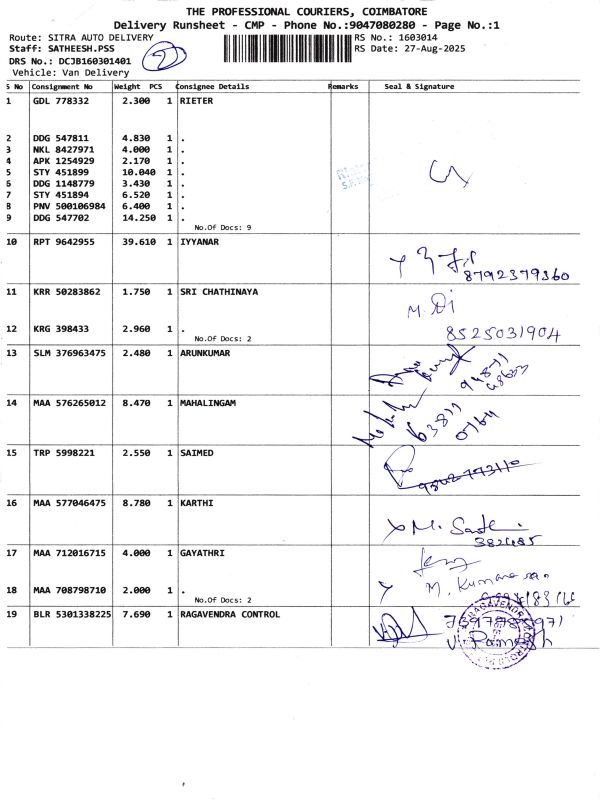 THE PROFESSIONAL COURIERS, COIMBATORE
Delivery Runsheet - CMP - Phone No.:9047080280 - Page No.:1
Route: SITRA AUTO DELIVERY RS No.: 1603014
Staff: SATHEESH.PSS RS Date: 27-Aug-2025
DRS No.: DCJB160301401
Vehicle: Van Delivery
S No Consignment No Weight PCS Consignee Details Remarks Seal & Signature
1 GDL 778332 2.300 1 RIETER
2 DDG 547811 4.830 1 .
3 NKL 8427971 4.000 1 .
4 APK 1254929 2.170 1 .
5 STY 451899 10.040 1 .
6 DDG 1148779 3.430 1 .
7 STY 451894 6.520 1 .
8 PNV 500106984 6.400 1 .
9 DDG 547702 14.250 1 .
No.Of Docs: 9
10 RPT 9642955 39.610 1 IYYANAR
8792379360
11 KRR 50283862 1.750 1 SRI CHATHINAYA
12 KRG 398433 2.960 1 .
8525031904
No.Of Docs: 2
13 SLM 376963475 2.480 1 ARUNKUMAR
14 MAA 576265012 8.470 1 MAHALINGAM
15 TRP 5998221 2.550 1 SAIMED
16 MAA 577046475 8.780 1 KARTHI
17 MAA 712016715 4.000 1 GAYATHRI
18 MAA 708798710 2.000 1 .
No.Of Docs: 2
19 BLR 5301338225 7.690 1 RAGAVENDRA CONTROL